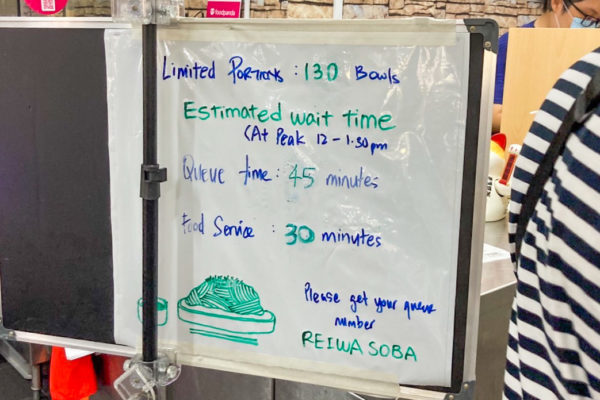 foodpanda
Limited Portions : 130 Bowls
Estimated wait time
(At Peak 12 - 1.30pm
Queue time : 45 minutes
Food Service : 30 minutes
Please get your queue
number
REIWA SOBA